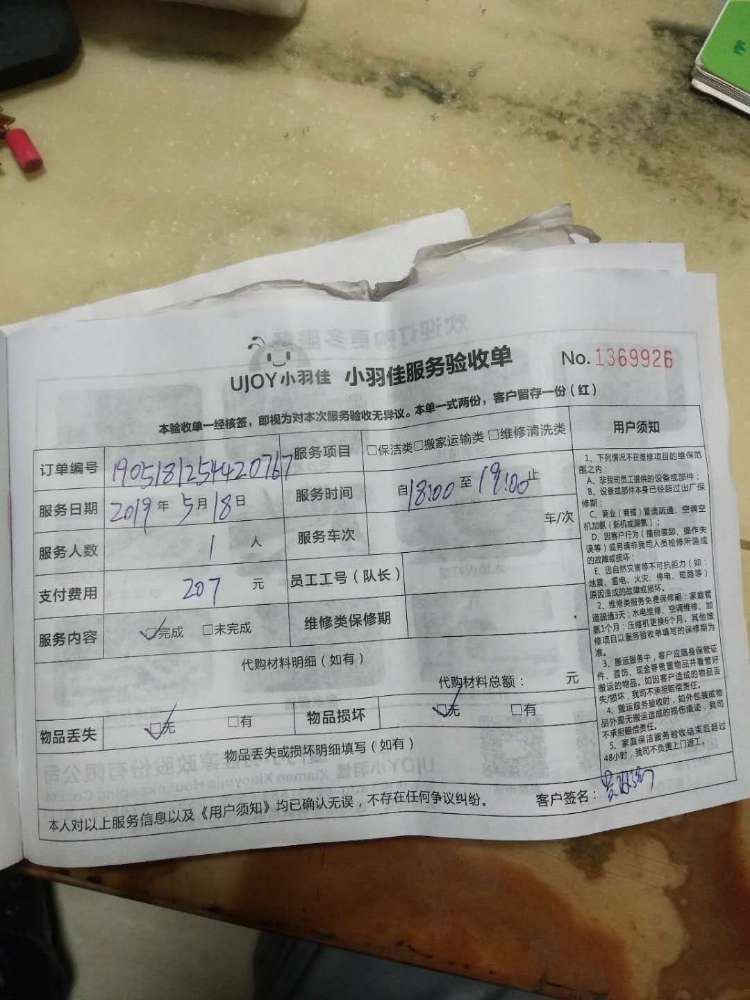 欢迎订购更多服务
UJOY小羽佳 小羽佳服务验收单 No. 1369926
本验收单一经核签，即视为对本次服务验收无异议。本单一式两份，客户留存一份（红）
订单编号 1905181254420767 服务项目 □保洁类□搬家运输类□维修清洗类
服务日期 2019年5月18日 服务时间 自18:00至19:00止
服务人数 1 人 服务车次 车/次
支付费用 207 元 员工工号（队长）
服务内容 ☑完成 □未完成 维修类保修期
代购材料明细（如有）
代购材料总额： 元
物品丢失 ☑无 □有 物品损坏 ☑无 □有
物品丢失或损坏明细填写（如有）
本人对以上服务信息以及《用户须知》均已确认无误，不存在任何争议纠纷。 客户签名：
用户须知
1、下列情况不在维修项目的维保范
围之内：
A、非我司员工提供的设备或部件；
B、设备或部件本身已经超过出厂保
修期；
C、商业（商铺）管道疏通、空调空
机加氨（新机或漏氨）；
D、因客户行为（擅自装卸、操作失
误等）或另请非我司人员检修所造成
的故障或损坏；
E、因自然灾害等不可抗拒力（如：
地震、雷电、火灾、停电、短路等）
原因造成的故障或损坏。
2、维修类服务免费保修期：家庭管
道疏通3天；水电维修、空调维修、加
氨1个月；压缩机更换6个月。其他维
修项目以服务验收单填写的保修期为
准。
3、搬运服务中，客户应随身保管证
件、首饰、现金等贵重物品并看管好
搬运的物品。如因客户造成的物品丢
失/损坏，我司不承担赔偿责任。
4、搬运服务验收时，如外包装或物
品外观无搬运造成的损伤痕迹，我司
不承担赔偿责任。
5、家庭保洁服务验收结束后超过
48小时，我司不负责上门返工。